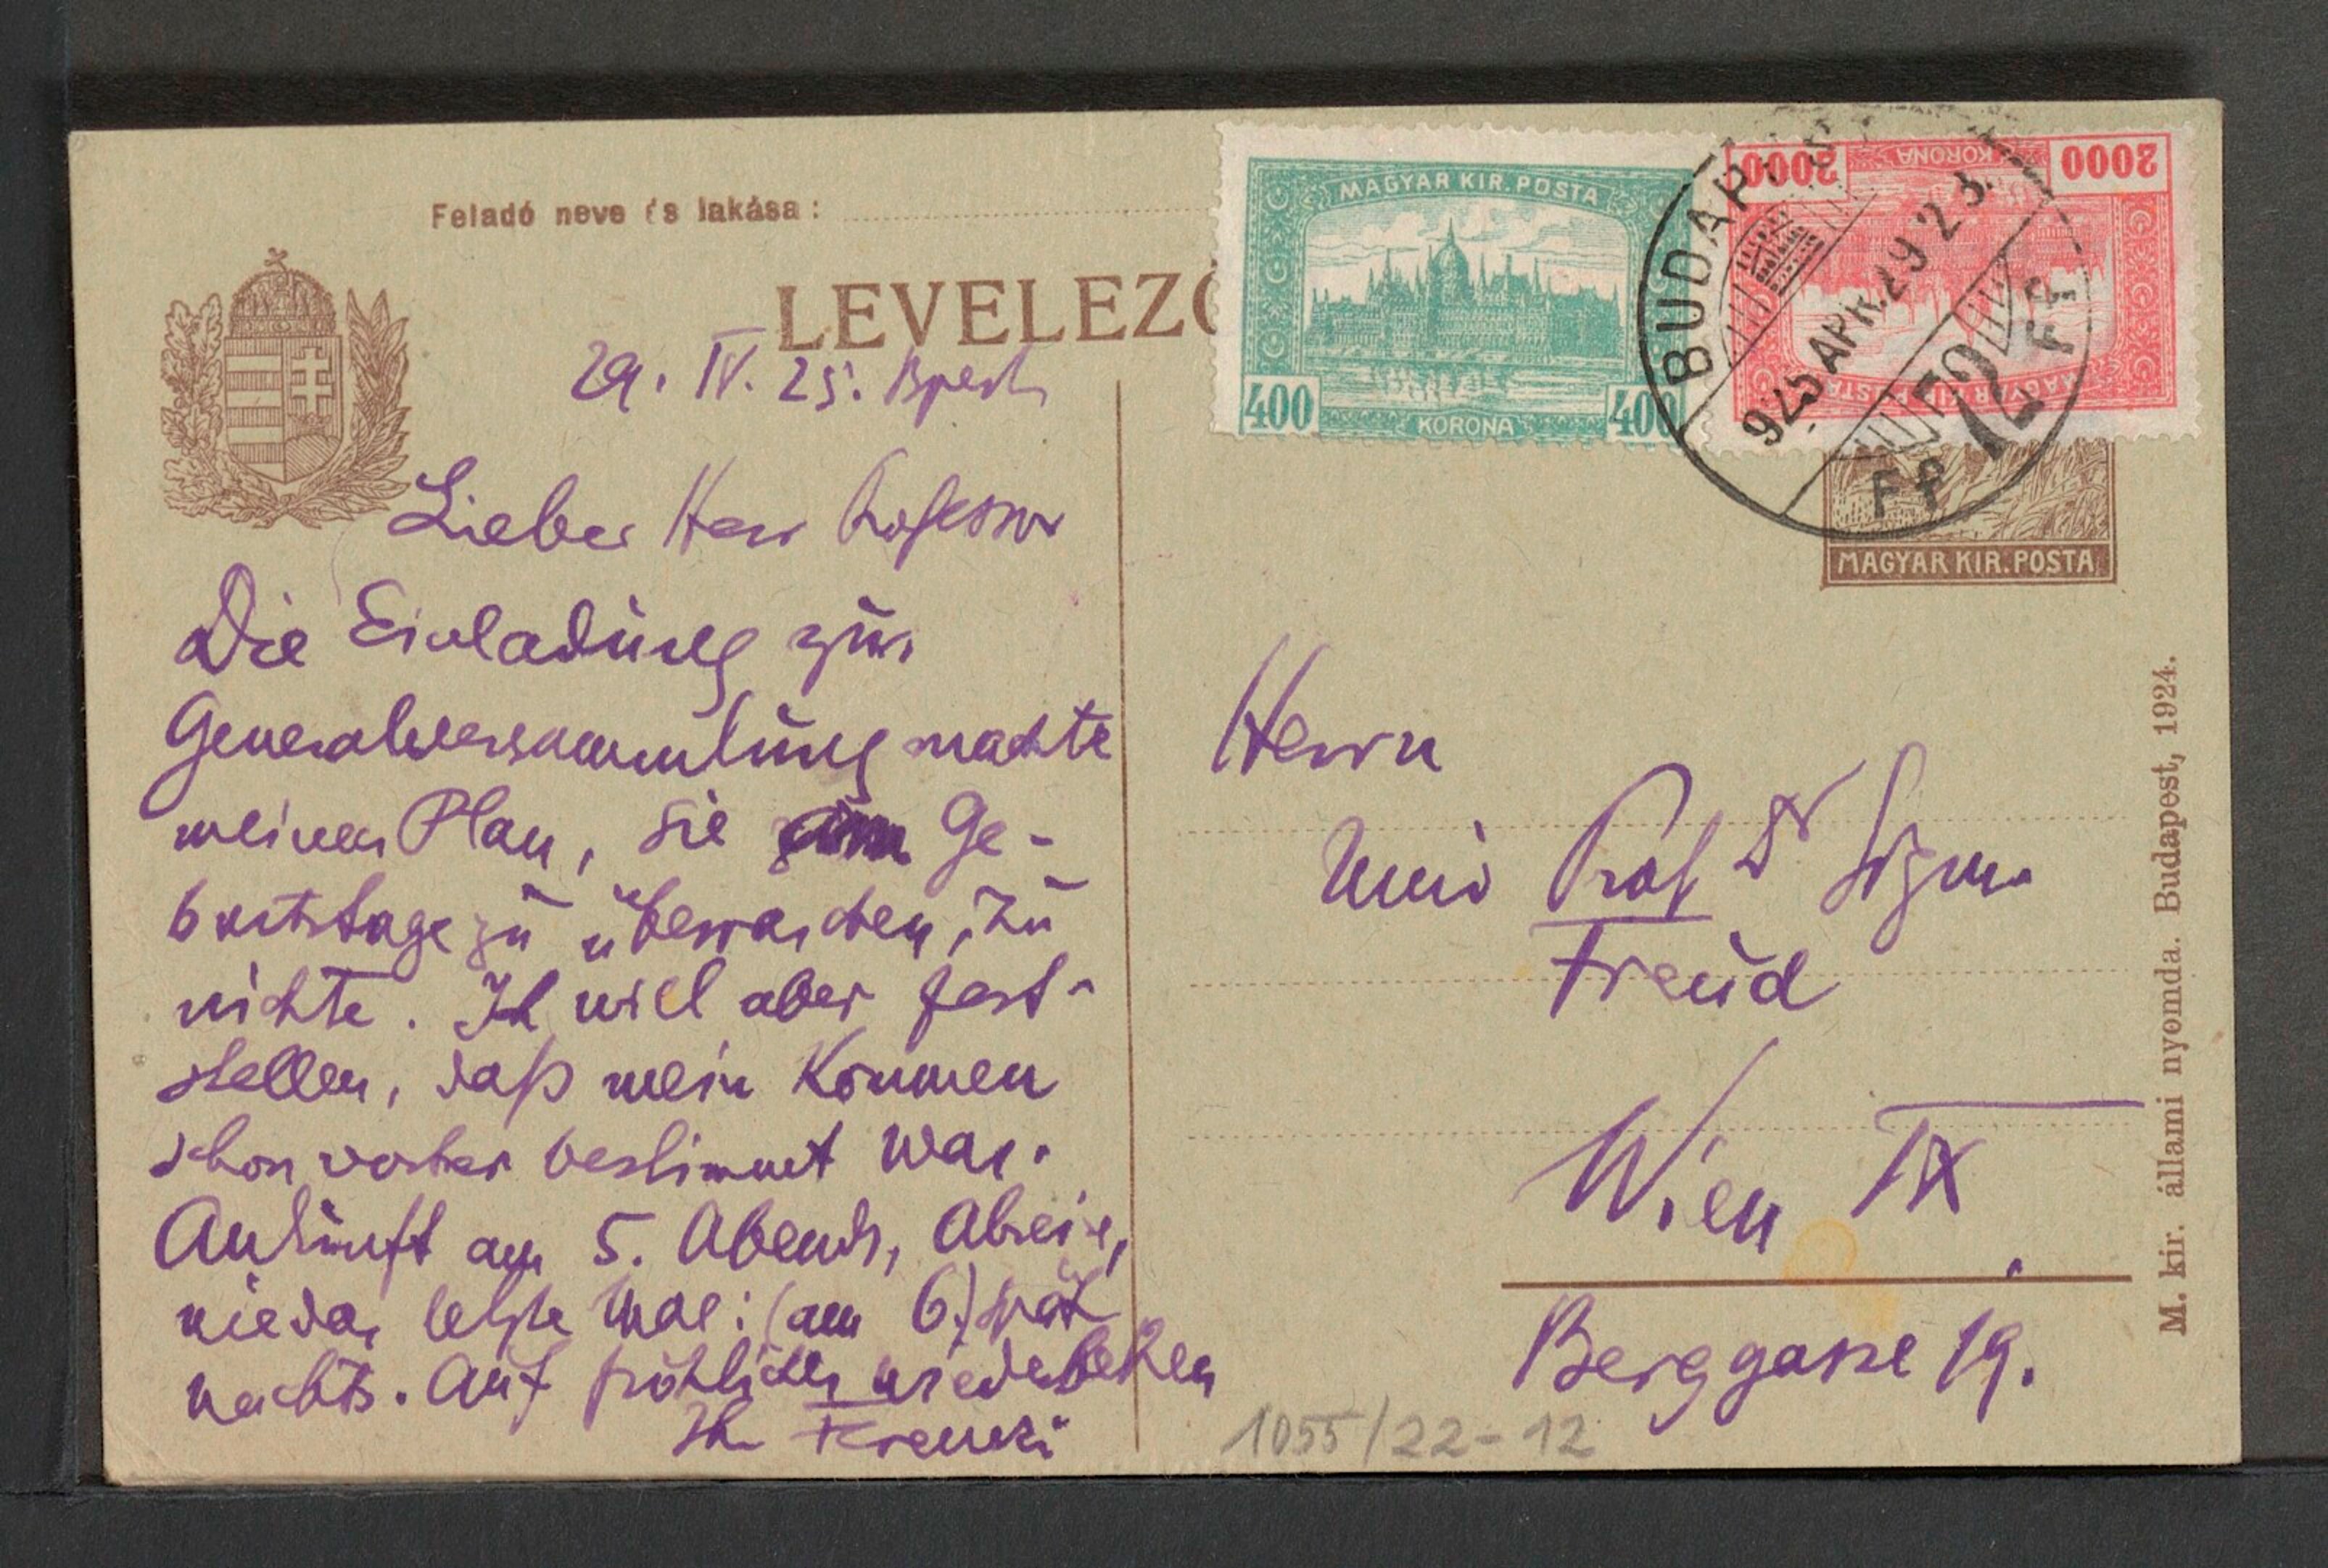 Feladó neve és lakása:
LEVELEZŐ
29. IV. 25. Bpest
Lieber Herr Professor
Die Einladung zur
Generalversammlung machte
meinen Plan, Sie Ge-
burtstage zu überraschen, zu
nichte. Ich will aber fest-
stellen, daß mein Kommen
schon vorher bestimmt war.
Ankunft am 5. Abends, Abreise,
letzte Mal: (am 6.) spät
nachts. Auf fröhliches wiedersehen
Ihr Ferenczi
MAGYAR KIR. POSTA
400 KORONA 400
2000 KORONA 2000
MAGYAR KIR. POSTA
BUDAPEST
925 APR. 29 23
72
MAGYAR KIR. POSTA
Herrn
Univ Prof Dr Sigm.
Freud
Wien IX
Berggasse 19.
1055/22-12
M. kir. állami nyomda. Budapest, 1924.